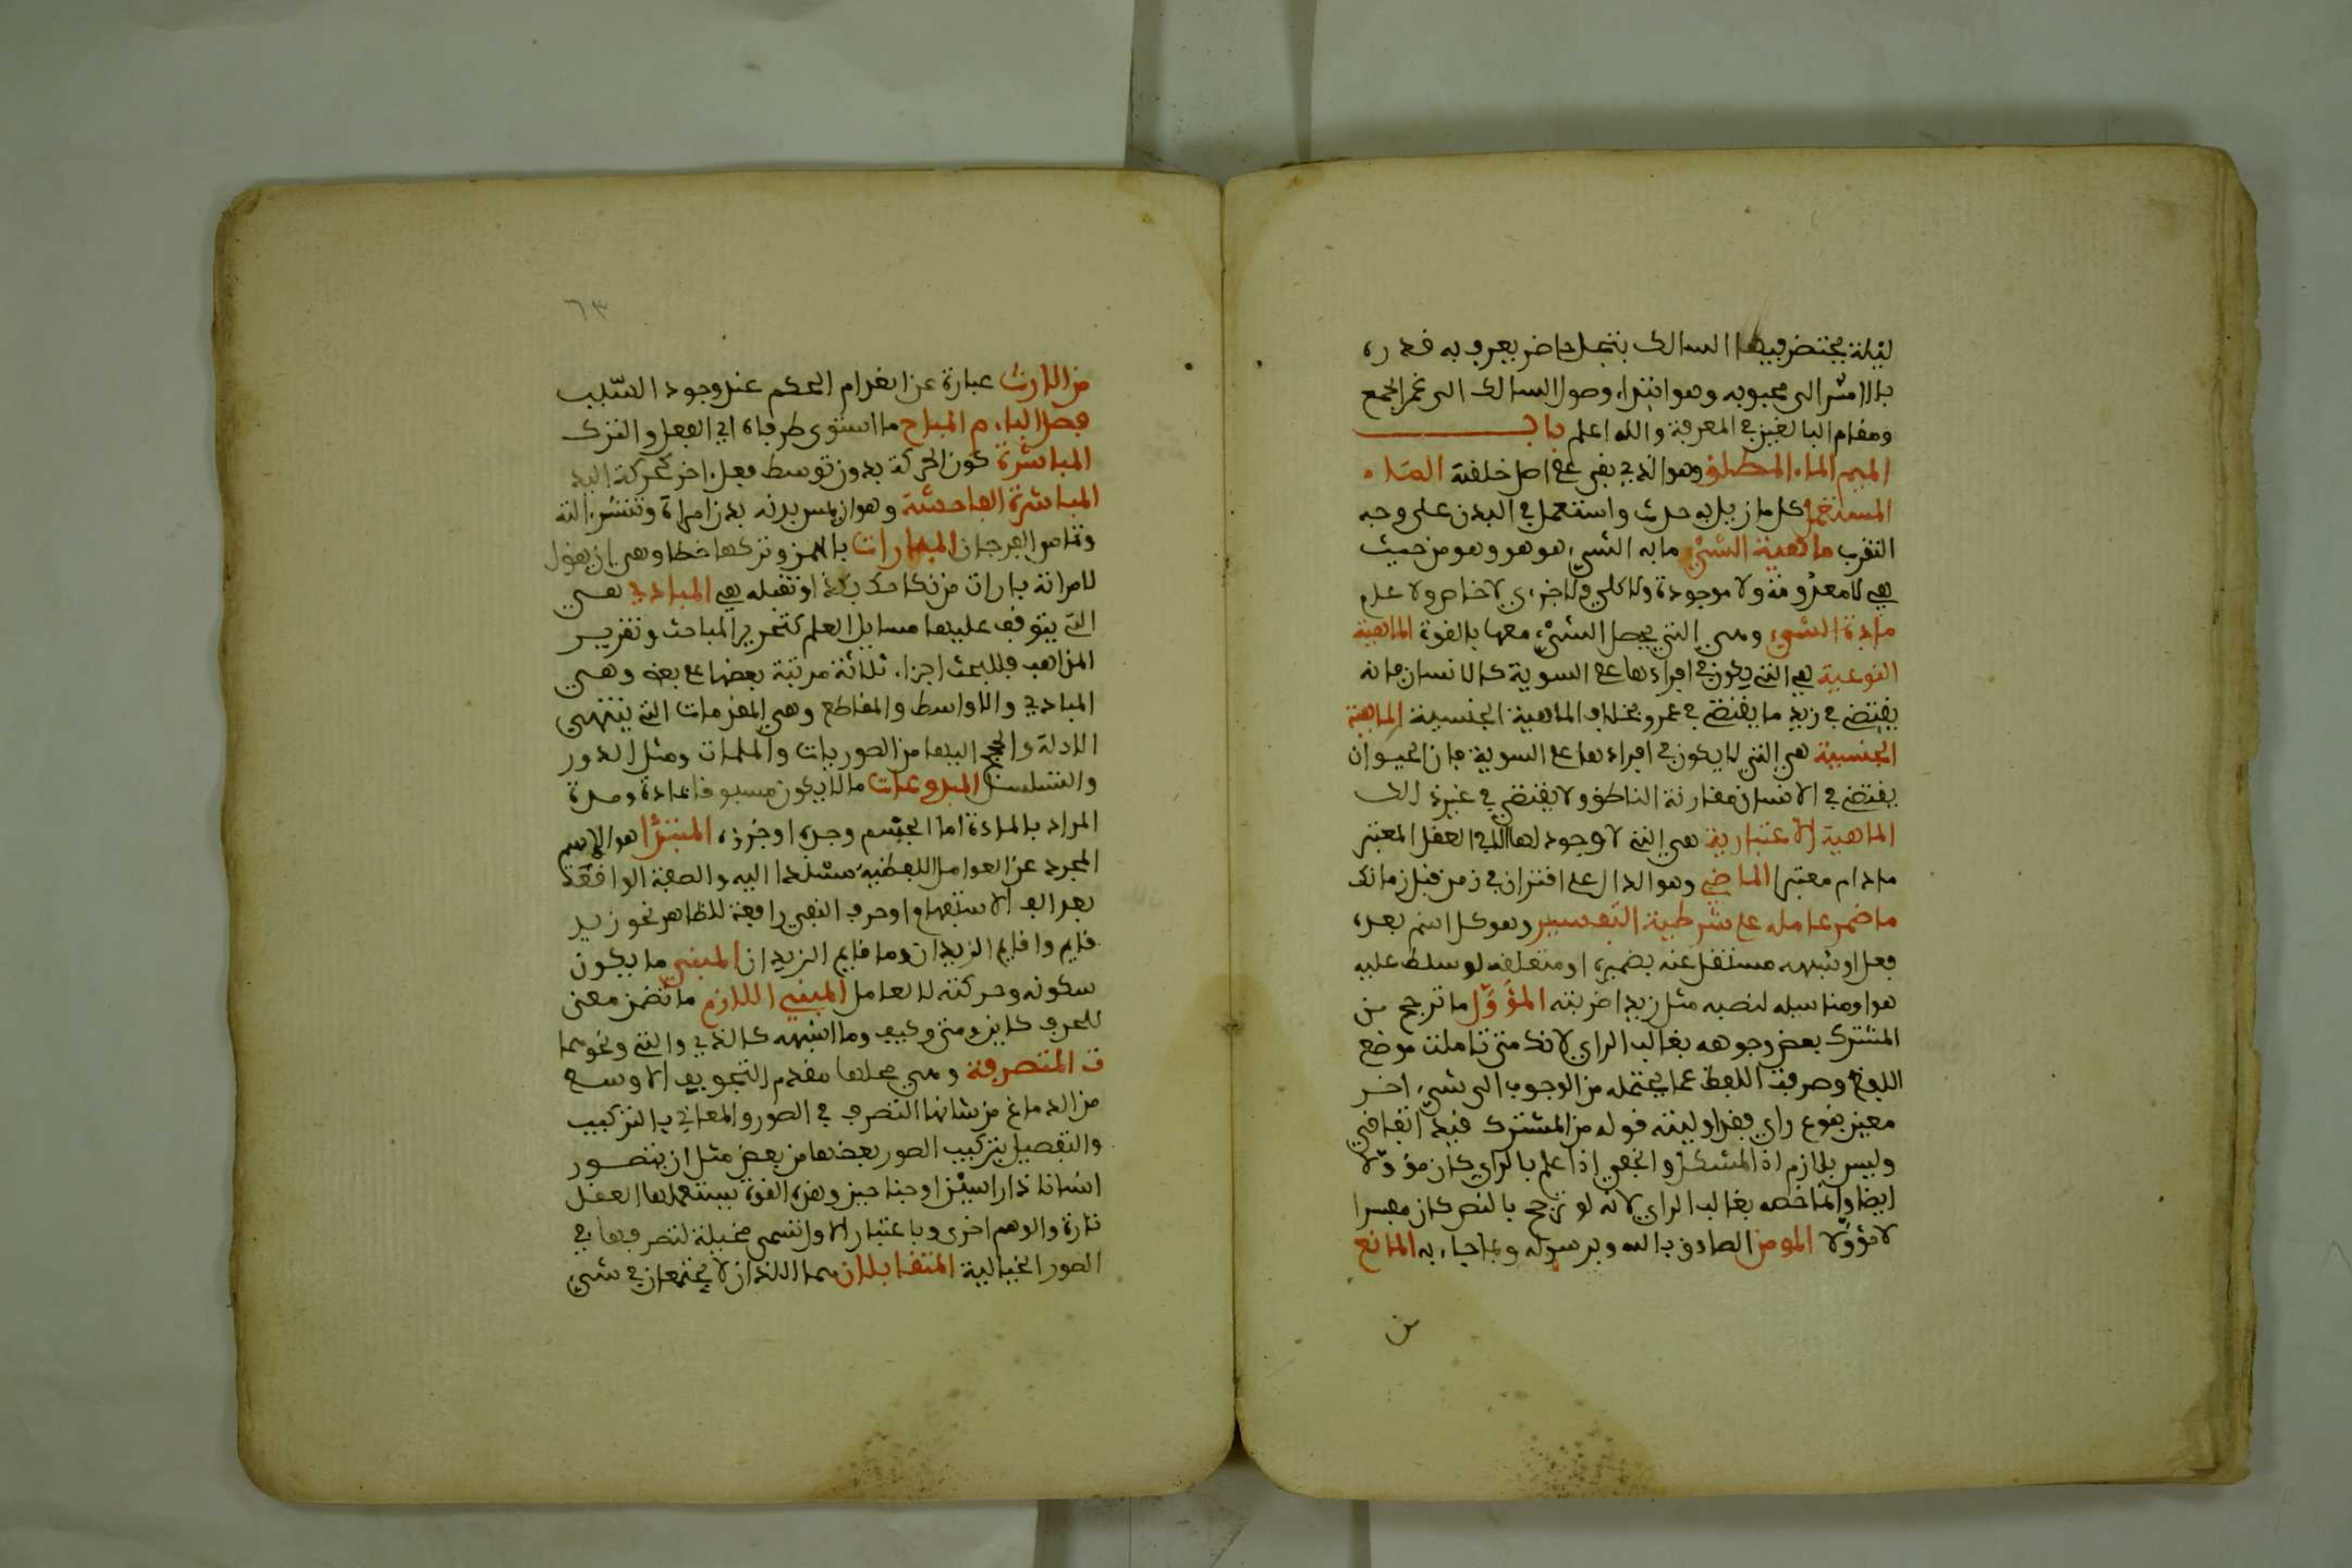 ليلة يختص فيها السالك بتجل خاص يعرف به قدره
بالامثر الى محبوبه وهو ابتداء وصول السالك الى عين الجمع
ومقام البالغين في المعرفة والله اعلم باب
الميم الماء المطلق وهو الذي بقي على اصل خلقته الماء
المستعمل كل ما ازيل به حدث واستعمل في البدن على وجه
التقرب ماهية الشيء ما به الشيء هو هو وهو من حيث
هي لا معدومة ولا موجودة ولا كلي ولا جزءي لا خاص ولا علم
مادة الشيء وهي التي يحصل الشيء معها بالقوة الماهية
النوعية هي التي يكون في افرادها على السوية كالانسان فانه
يقتضي في زيد ما يقتضي في عمرو بخلاف الماهية الجنسية الماهية
الجنسية هي التي لا يكون في افرادها على السوية فان الحيوان
يقتضي في الانسان مقارنة الناطق ولا يقتضي في غيره ذلك
الماهية الاعتبارية هي التي لا وجود لها الا في العقل المعتبر
مادام معتبرا الماضي وهو الدال على اقتران في زمن قبل زمانك
ما ضمر عامله على شرطية التفسير وهو كل اسم بعده
فعل او شبهه مستقل عنه بضميره او متعلقه لو سلط عليه
هو او مناسبه لنصبه مثل زيدا ضربته المؤول ما ترجح من
المشترك بعض وجوهه بغالب الراي لانك متى تاملت موضع
اللفظ وصرفت اللفظ عما يحتمله من الوجوه الى شيء اخر
معين بنوع راي فقد اوليته قوله من المشترك قيد اتفاقي
وليس بلازم اذ المشكل والخفي اذا علم بالراي كان مؤولا
ايضا وانما خصه بغالب الراي لانه لو ترجح بالنص كان مفسرا
لا مؤولا المومن الصادق بالله وبرسوله وبما جاء به المانع
من
٦٣
من الارث عبارة عن انعدام الحكم عند وجود السبب
فصل الباء م المباح ما استوى طرفاه اي الفعل والترك
المباشرة كون الحركة بدون توسط فعل اخر كحركة اليد
المباشرة الفاحشة وهو ان يمس بدنه بدن امراة وتنتشر الته
وتماس الفرجان المبارات بالهمز وتركها خطا وهي ان يقول
لامراته بارات من نكاحك بكذا وتقبله هي المبادي هي
التي يتوقف عليها مسايل العلم كتحرير المباحث وتقرير
المذاهب فللبحث اجزاء ثلاثة مرتبة بعضها على بعض وهي
المبادي والاواسط والمقاطع وهي المقدمات التي ينتهي
الادلة والحجج اليها من الضوريات والملمات ومثل الدور
والتسلسل المبدوعات ما لا يكون مسبوقا بمادة ومدة
المراد بالمادة اما الجسم وحده او جزؤه المبتدا هو الاسم
المجرد عن العوامل اللفظية مسندا اليه والصفة الواقعة
بعد الف الاستفهام او حرف النفي رافعة للظاهر نحو زيد
قايم واقايم الزيدان وما قايم الزيدان المبني ما يكون
سكونه وحركته لا بعامل المبني اللازم ما تضمن معنى
للحرف كاين ومتى وكيف وما اشبهه كالذي والتي ونحوهما
ت المتصرفة وهي محلها مقدم التجويف الاوسط
من الدماغ من شانها التصرف في الصور والمعاني بالتركيب
والتفصيل بتركيب الصور بعضها من بعض مثل ان يتصور
انسانا ذا راسين او جناحين وهذه القوة يستعملها العقل
تارة والوهم اخرى وباعتبار الاول تسمى مخيلة لتصرفها في
الصور الخيالية المتقابلان هما اللذان لا يجتمعان في شيء